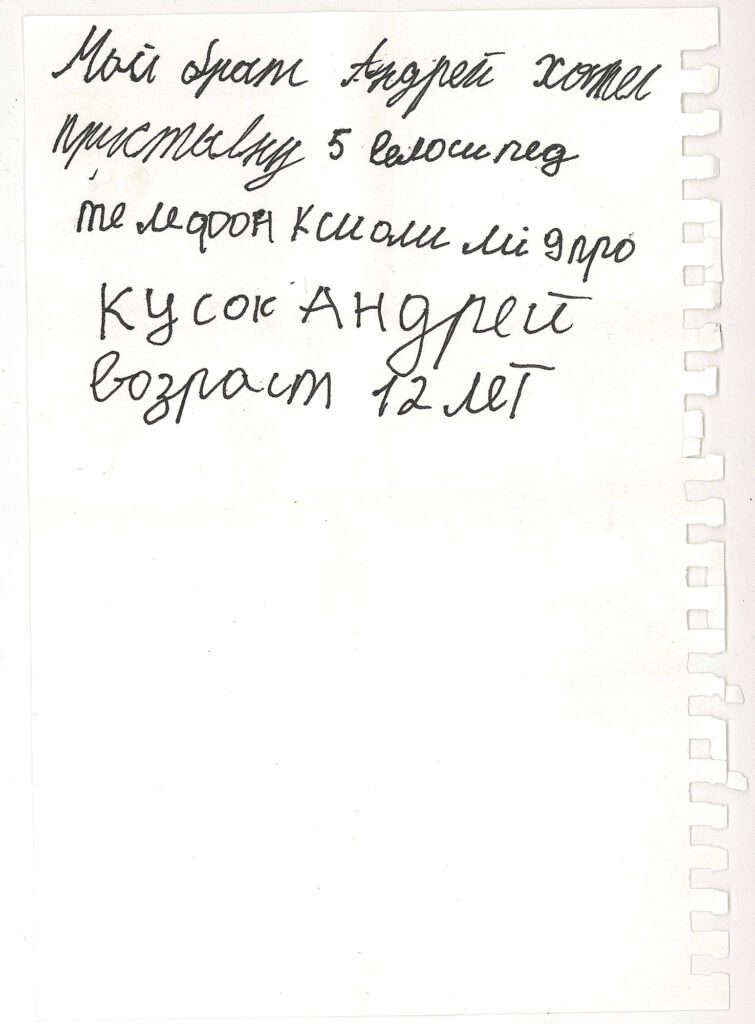 Мой брат Андрей хотел
приставку 5 велосипед
телефон Ксиоли мі 9 про
Кусок Андрей
возраст 12 лет